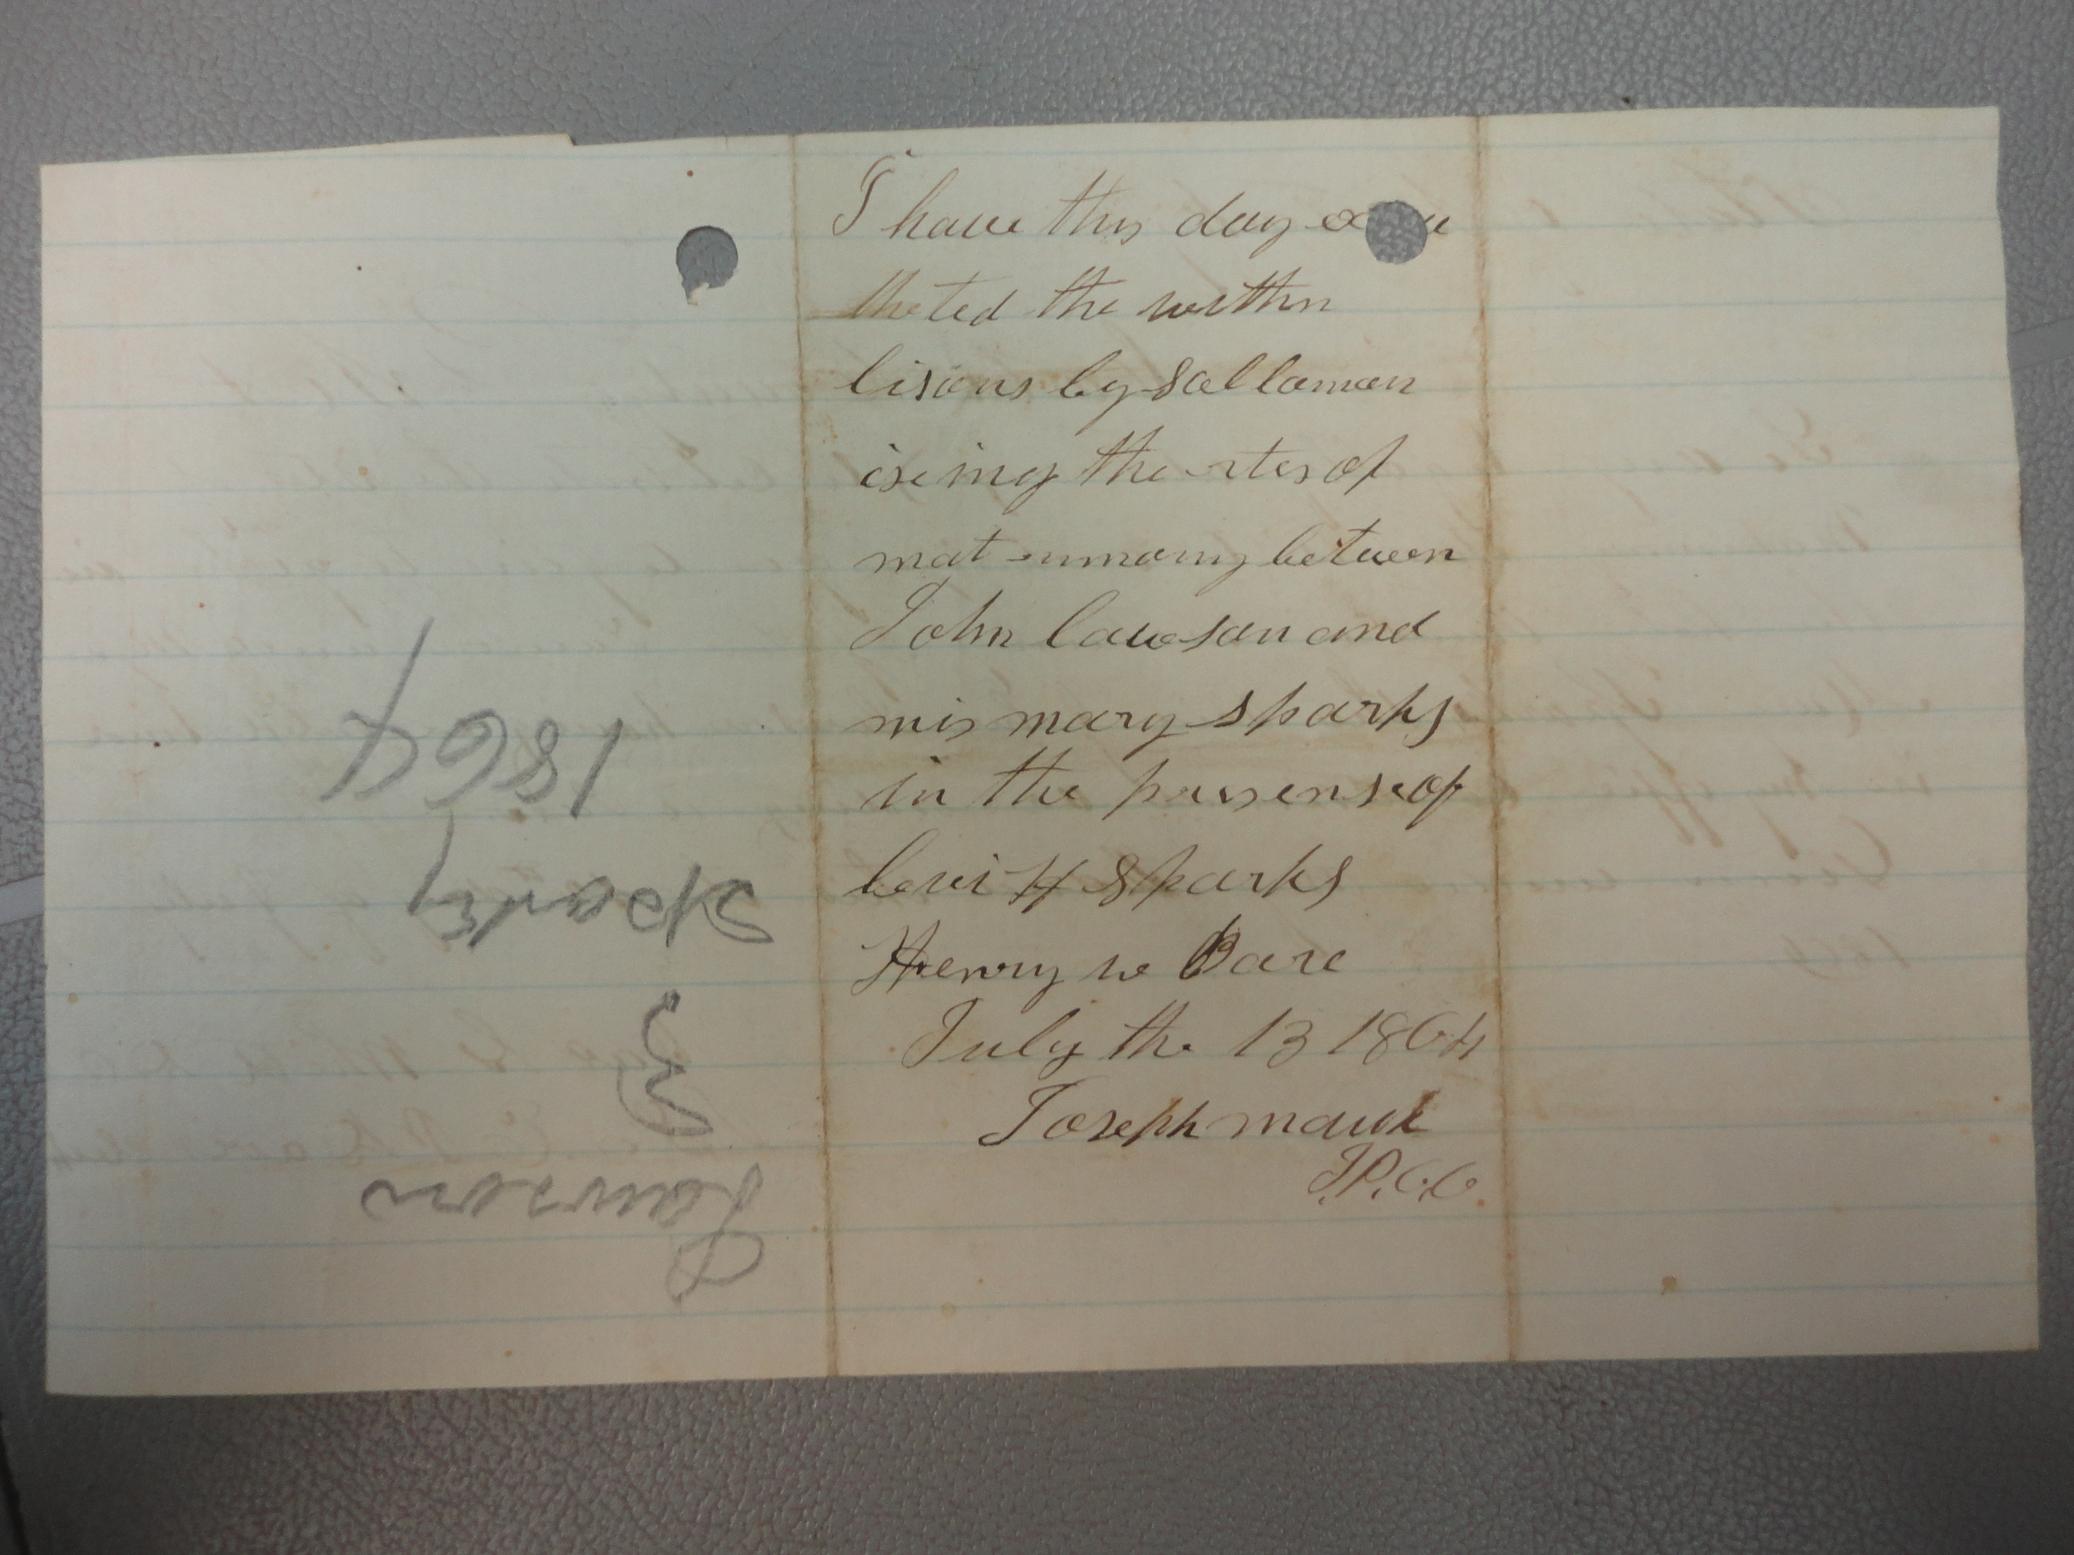 I have this day exe
theted the within
lisons by sallaman
iseing the rites of
matrimony between
John lawson and
mis mary sparks
in the presense of
levi H sparks
Henry w Bare
July the 13 1864
Joseph mauk
J.P.C.C.
Lawson
&
Sparks
1864